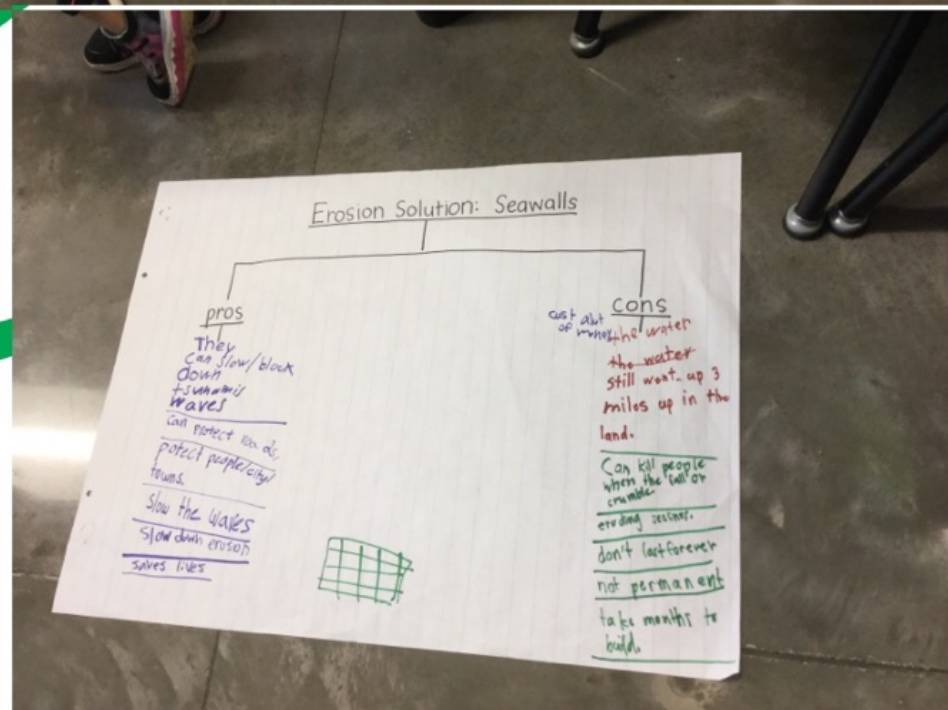 Erosion Solution: Seawalls
pros
They
can slow/block
down
tsunamis
waves
can protect
potect people/city/
towns.
slow the waves
slow down erosion
saves lives
cons
cost alot
of money
the water
the water
still went up 3
miles up in the
land.
Can kill people
when the fall or
crumble
eroding
don't last forever
not permanent
take months to
build.